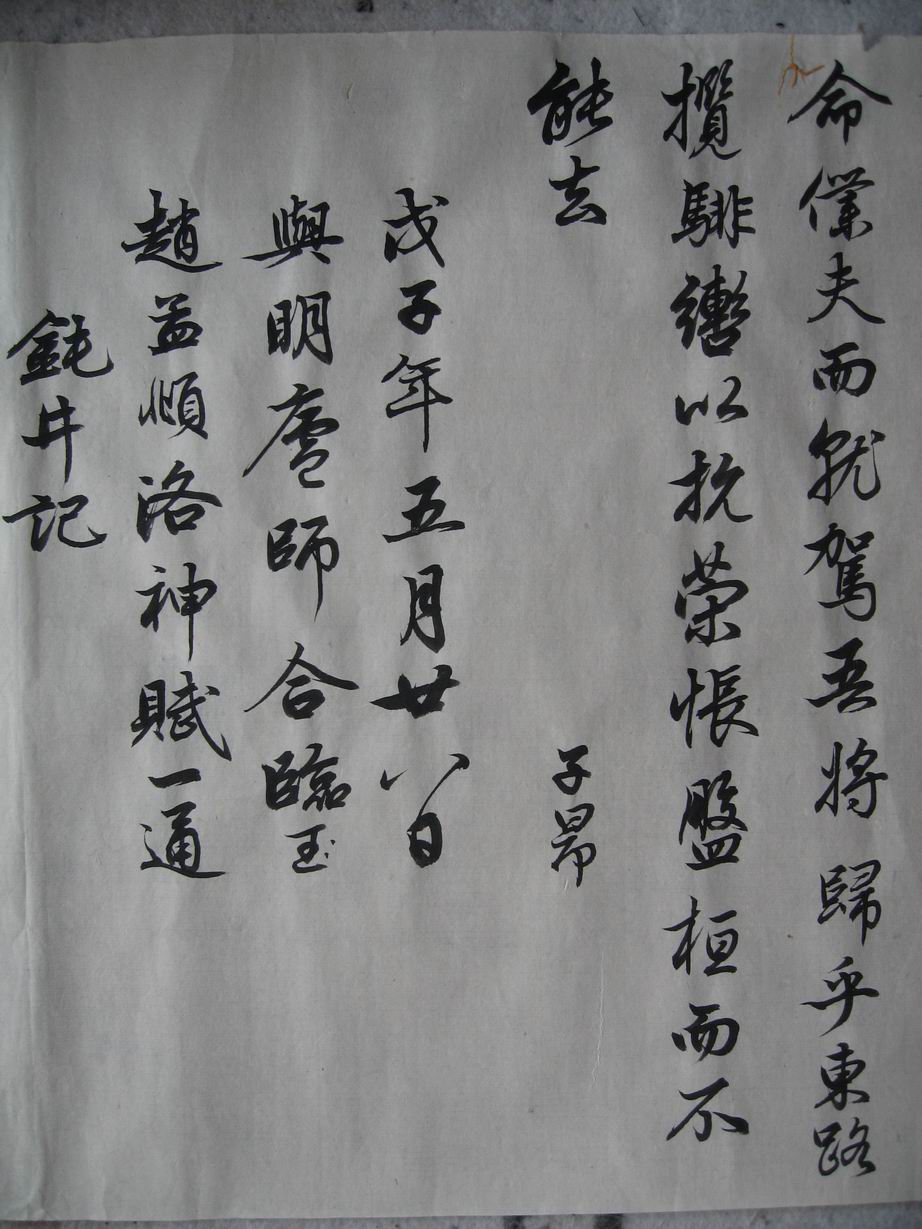 命僕夫而就駕吾將歸乎東路
攬騑轡以抗策悵盤桓而不
能去 子昂
戊子年五月廿八日
與明廬師合臨
趙孟頫洛神賦一通
鈍井記